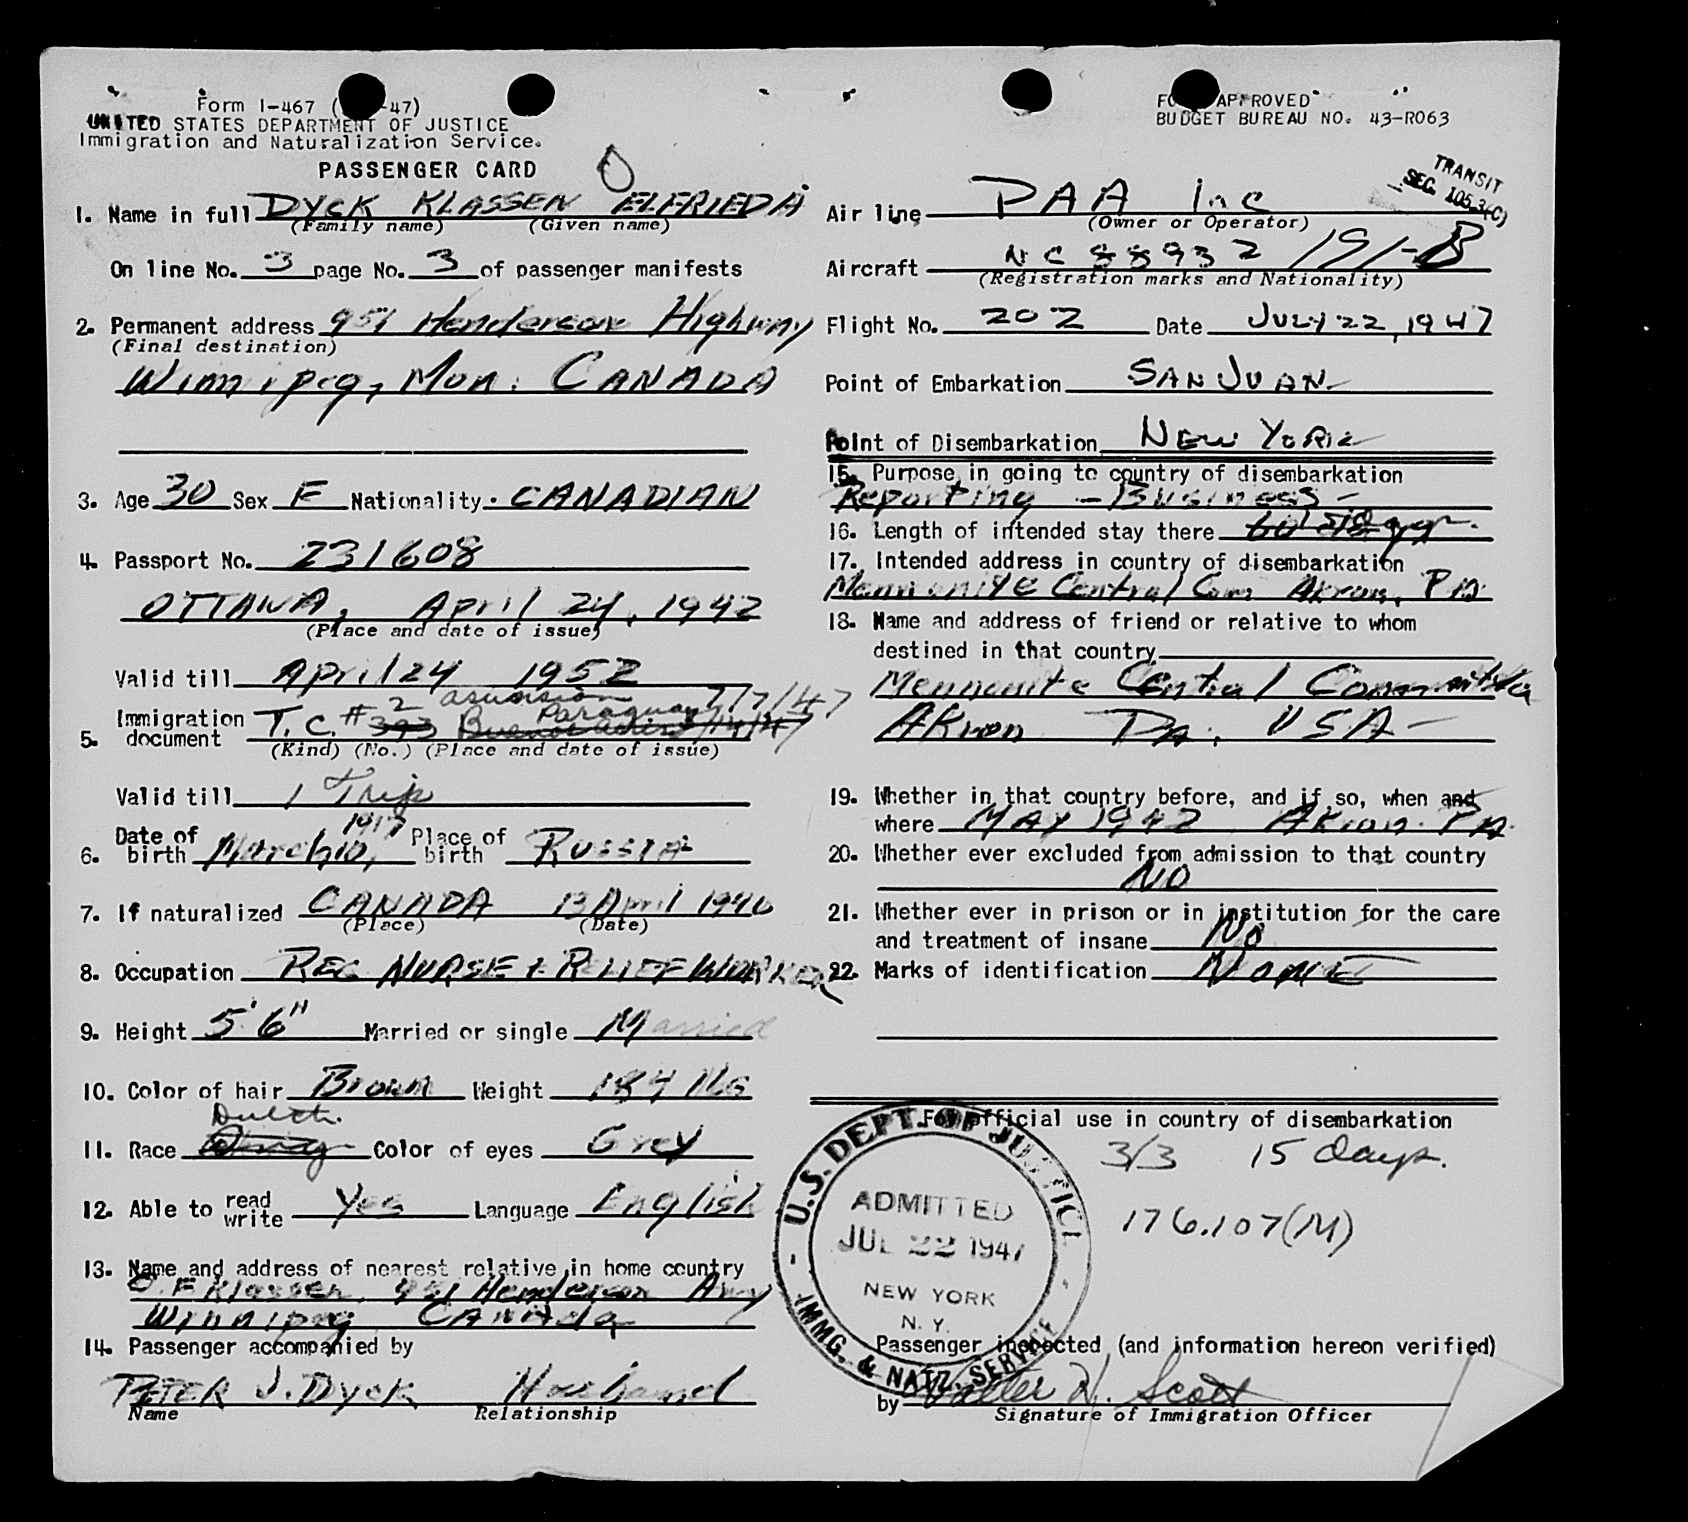 Form I-467 ( -47)
UNITED STATES DEPARTMENT OF JUSTICE
Immigration and Naturalization Service.
PASSENGER CARD
1. Name in full DYCK KLASSEN ELFRIEDA
(Family name) (Given name)
On line No. 3 page No. 3 of passenger manifests
2. Permanent address 951 Henderson Highway
(Final destination)
Winnipeg, Man. CANADA
3. Age 30 Sex F Nationality. CANADIAN
4. Passport No. 231608
OTTAWA, April 24, 1942
(Place and date of issue)
Valid till April 24 1952
asuncion
5. Immigration document T.C. # 2 393 Paraguay 7/7/47
(Kind) (No.) (Place and date of issue)
Valid till 1 Trip
6. Date of birth March 10, 1917 Place of birth RUSSIA
7. If naturalized CANADA 13 April 1940
(Place) (Date)
8. Occupation REG NURSE & RELIEF WORKER
9. Height 5'6" Married or single Married
10. Color of hair Brown Weight 184 lbs
Dutch.
11. Race Color of eyes Grey
12. Able to read write Yes Language English
13. Name and address of nearest relative in home country
C.F Klassen, 951 Henderson Hwy
Winnipeg Canada
14. Passenger accompanied by
PETER J. DYCK Husband
Name Relationship
FO APPROVED
BUDGET BUREAU NO. 43-R063
TRANSIT
SEC. 105.3(C)
Air line PAA Inc
(Owner or Operator)
Aircraft NC 88932 191-B
(Registration marks and Nationality)
Flight No. 202 Date JULY 22, 1947
Point of Embarkation SAN JUAN
Point of Disembarkation NEW YORK
15. Purpose in going to country of disembarkation
Reporting - Business -
16. Length of intended stay there 60 days
17. Intended address in country of disembarkation
Mennonite Central Com Akron, PA
18. Name and address of friend or relative to whom
destined in that country
Mennonite Central Committee
AKron Pa. USA -
19. Whether in that country before, and if so, when and
where MAY 1942 Akron. PA.
20. Whether ever excluded from admission to that country
NO
21. Whether ever in prison or in institution for the care
and treatment of insane No
22. Marks of identification NONE
For official use in country of disembarkation
3/3 15 days.
176.107(M)
U.S. DEPT. OF JUSTICE
ADMITTED
JUL 22 1947
NEW YORK
N.Y.
IMMG. & NATZ. SERVICE
Passenger inspected (and information hereon verified)
by Walter H. Scott
Signature of Immigration Officer